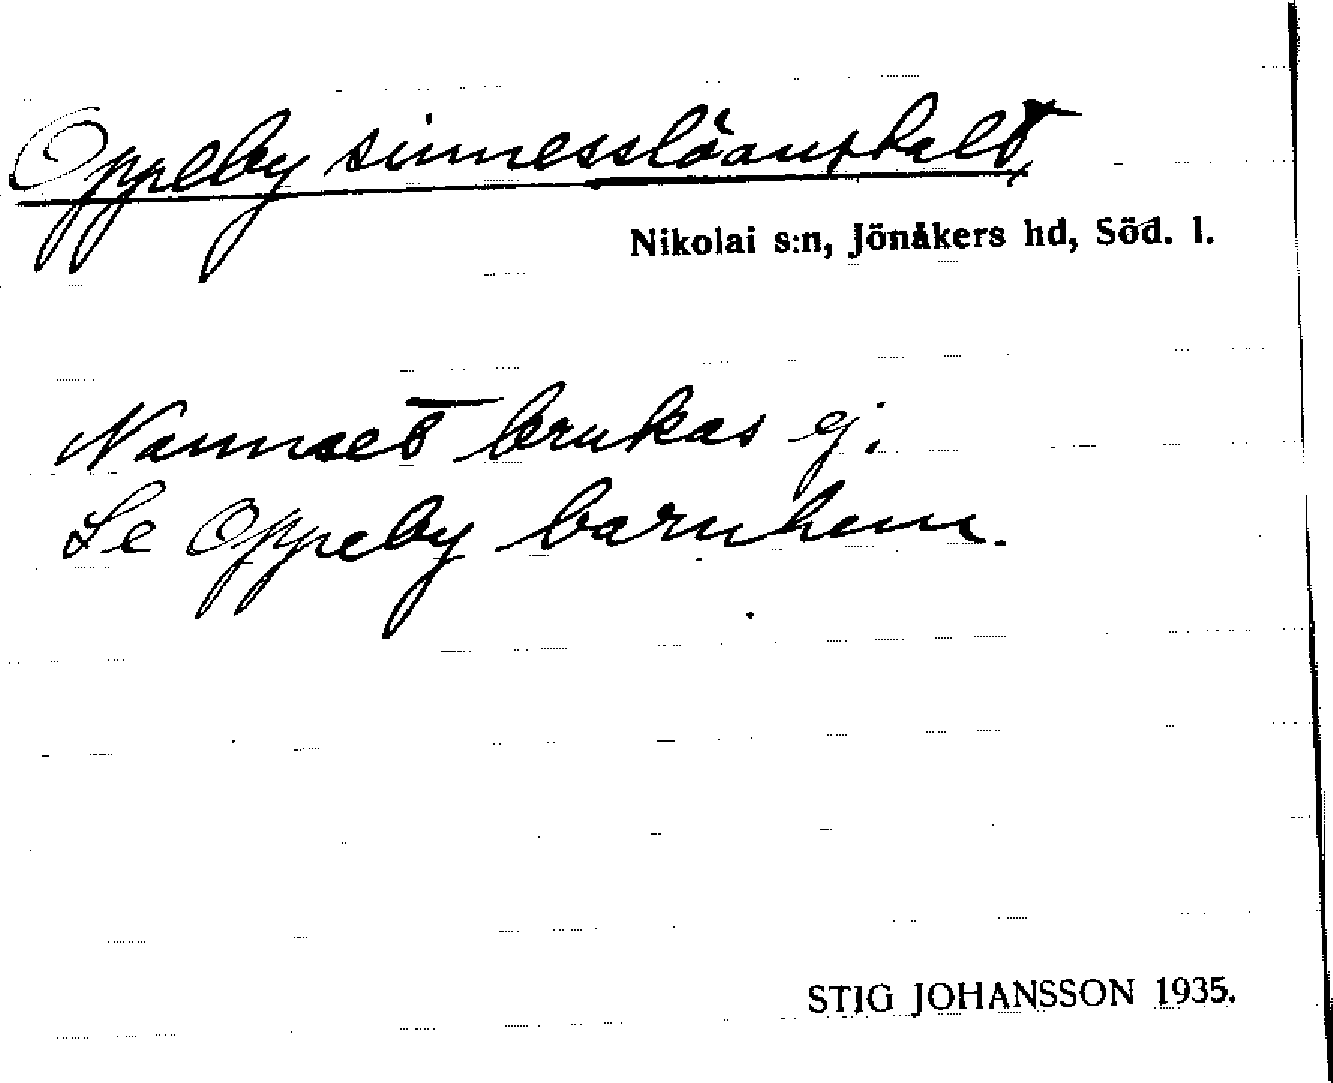 Oppeby sinnesslöanstalt
Nikolai s:n, Jönåkers hd, Söd. l.
Namnet brukas ej.
Se Oppeby barnhem.
STIG JOHANSSON 1935.